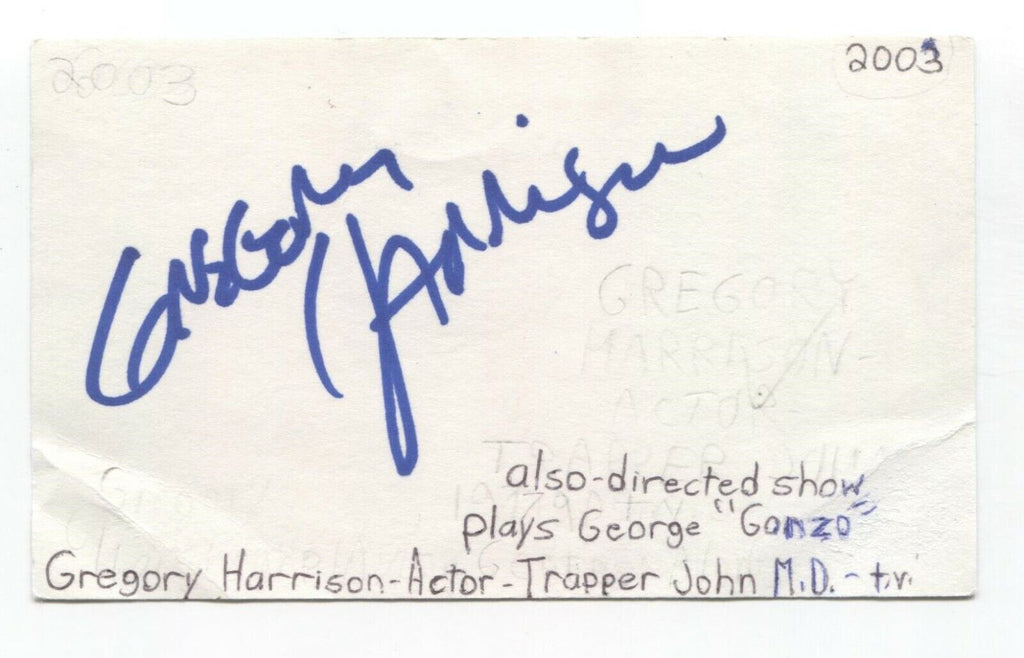 2003
2003
Gregory Harrison
GREGORY
HARRISON-
ACTOR-
TRAPPER JOHN
also-directed show
plays George "Gonzo"
Gregory Harrison-Actor-Trapper John M.D.-t.v.